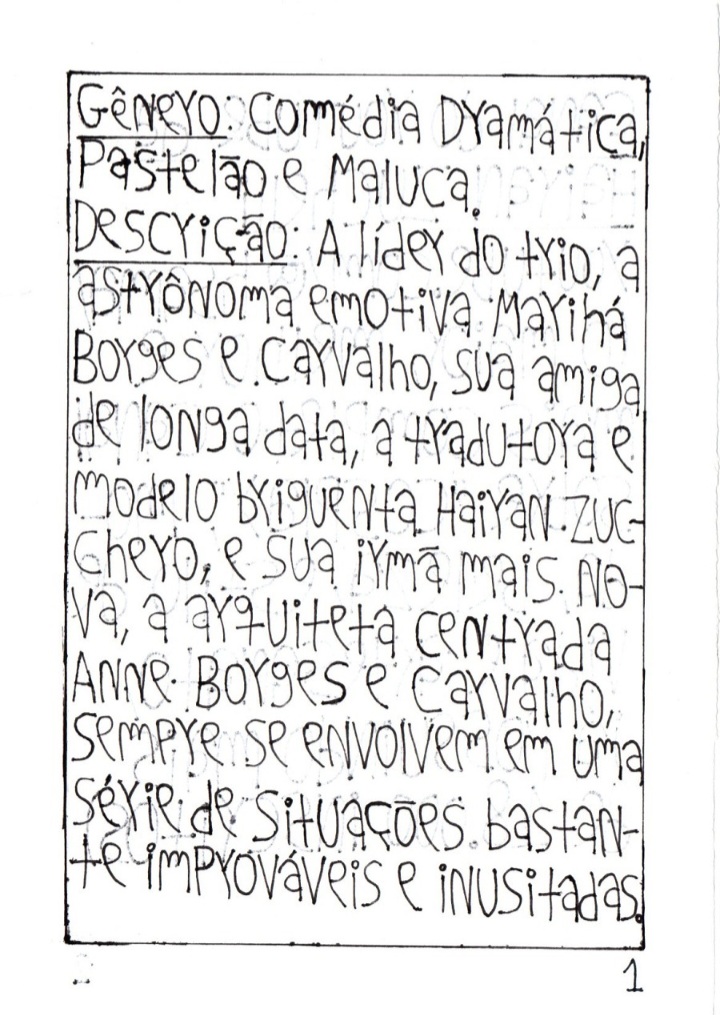 Gênero: Comédia Dramática,
Pastelão e Maluca.
Descrição: A líder do trio, a
astrônoma emotiva Marihá
Borges e Carvalho, sua amiga
de longa data, a tradutora e
modelo briguenta Hairan Zuc-
chero, e sua irmã mais no-
va, a arquiteta centrada
Anne Borges e Carvalho,
sempre se envolvem em uma
série de situações bastan-
te improváveis e inusitadas.
1